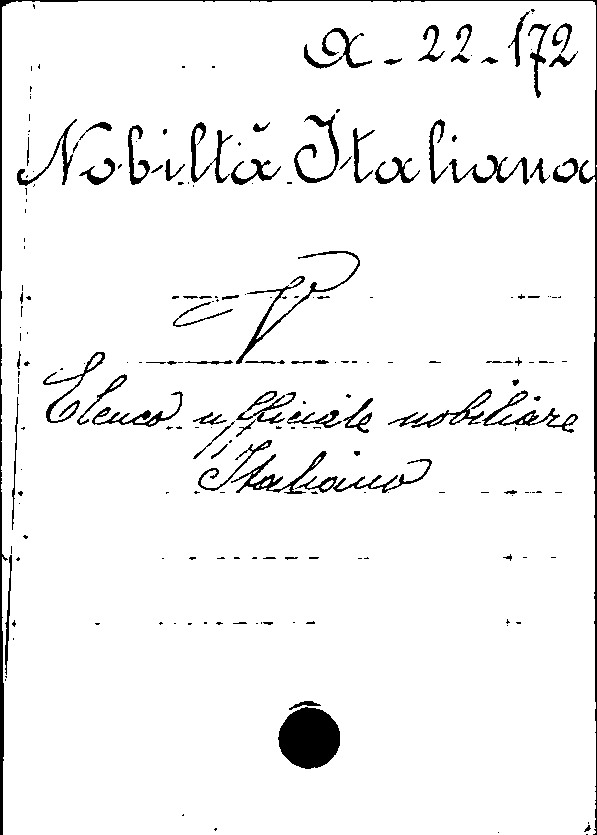 A - 22 - 172
Nobiltà Italiana
V
Elenco ufficiale nobiliare
Italiano